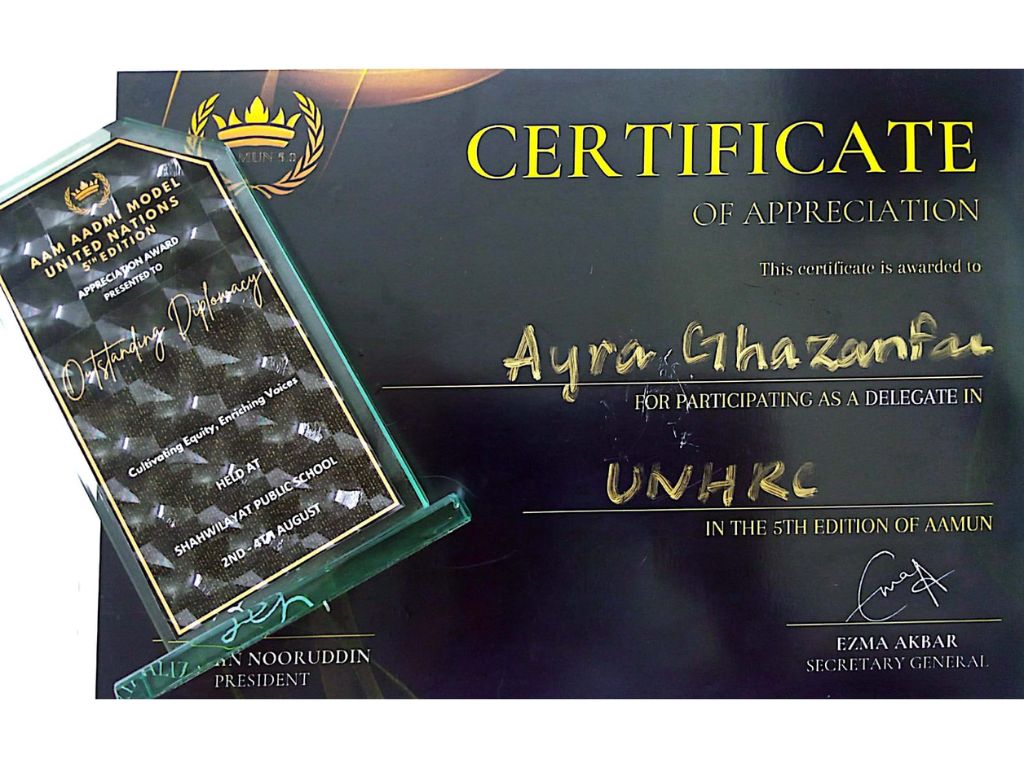 AAM AADMI MODEL
UNITED NATIONS
5TH EDITION
APPRECIATION AWARD
PRESENTED TO
Outstanding Diplomacy
Cultivating Equity, Enriching Voices
HELD AT
SHAHWILAYAT PUBLIC SCHOOL
2ND - 4TH AUGUST
CERTIFICATE
OF APPRECIATION
This certificate is awarded to
Ayra Ghazanfar
FOR PARTICIPATING AS A DELEGATE IN
UNHRC
IN THE 5TH EDITION OF AAMUN
EZMA AKBAR
SECRETARY GENERAL
NOORUDDIN
PRESIDENT